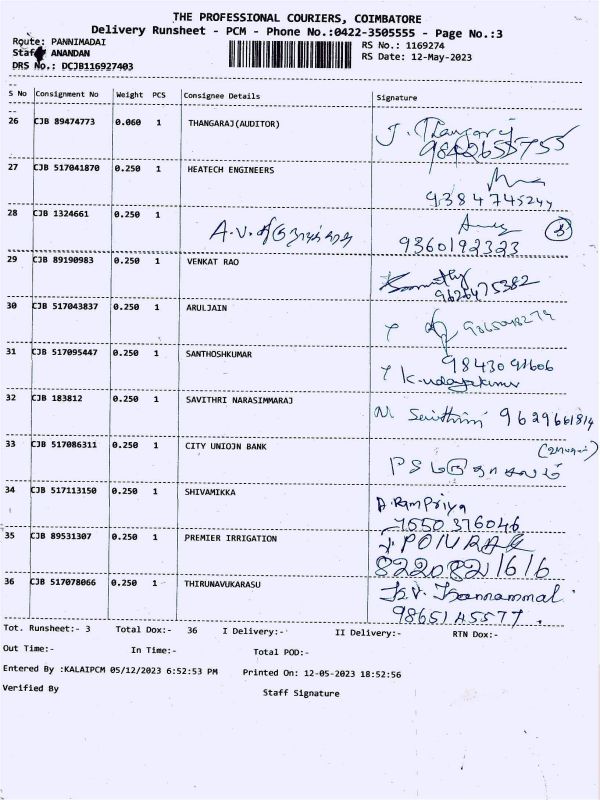 THE PROFESSIONAL COURIERS, COIMBATORE
Delivery Runsheet - PCM - Phone No.:0422-3505555 - Page No.:3
Route: PANNIMADAI RS No.: 1169274
Staff ANANDAN RS Date: 12-May-2023
DRS No.: DCJB116927403
S No Consignment No Weight PCS Consignee Details Signature
26 CJB 89474773 0.060 1 THANGARAJ(AUDITOR) J. Thangaraj
9842655755
27 CJB 517041870 0.250 1 HEATECH ENGINEERS
9384745244
28 CJB 1324661 0.250 1
A.V. 9360192323
29 CJB 89190983 0.250 1 VENKAT RAO
9626475382
30 CJB 517043837 0.250 1 ARULJAIN
31 CJB 517095447 0.250 1 SANTHOSHKUMAR
K. udayakumar
32 CJB 183812 0.250 1 SAVITHRI NARASIMMARAJ M Savithri 9629661814
33 CJB 517086311 0.250 1 CITY UNIOJN BANK
34 CJB 517113150 0.250 1 SHIVAMIKKA A. RamPriya
7550376046
35 CJB 89531307 0.250 1 PREMIER IRRIGATION
8220821616
36 CJB 517078066 0.250 1 THIRUNAVUKARASU K.V. Kannammal.
9865145577.
Tot. Runsheet:- 3 Total Dox:- 36 I Delivery:- II Delivery:- RTN Dox:-
Out Time:- In Time:- Total POD:-
Entered By :KALAIPCM 05/12/2023 6:52:53 PM Printed On: 12-05-2023 18:52:56
Verified By Staff Signature